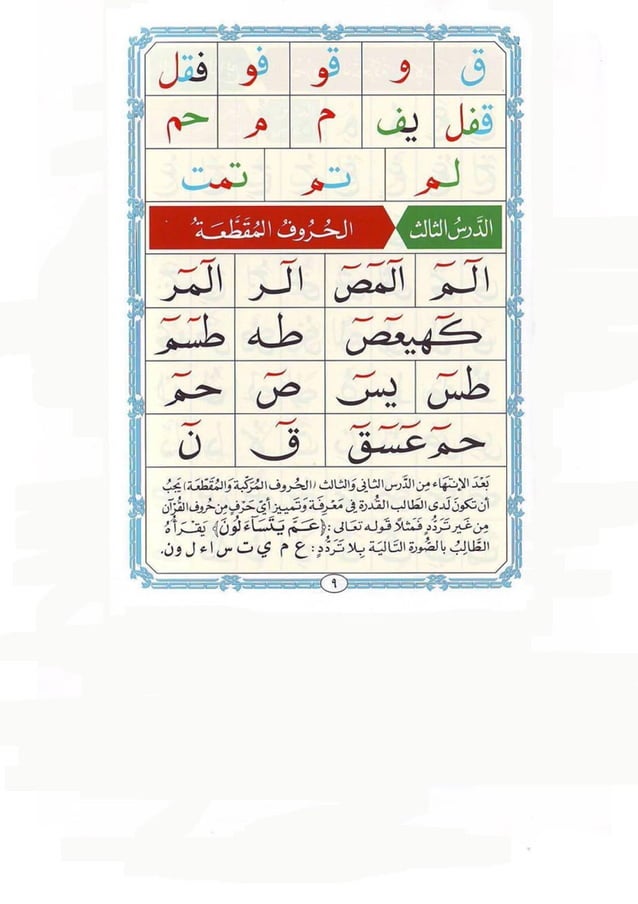 ق و قو فو فقل
قفل يف م م حم
لم تم تمت
الدَّرسُ الثالث الحُرُوفُ المُقَطَّعَةُ
الٓمٓ الٓمٓصٓ الٓر الٓمٓر
كٓهيعٓصٓ طه طسٓمٓ
طسٓ يسٓ صٓ حمٓ
حمٓ عٓسٓقٓ قٓ نٓ
بَعْدَ الإِنتِهَاء مِنَ الدَّرسِ الثَّانِي وَالثالث (الحُروف المُرَكَّبَة وَالمُقَطَّعَة) يَجبُ
أن تَكونَ لَدى الطالب القُدرَة فِي مَعْرِفَة وَتَمييز أيّ حَرْفٍ مِن حُروف القُرآن
مِن غَير تَردُّدٍ فَمَثلاً قَوله تعالى :﴿عَمَّ يَتَسَاءَلُونَ﴾ يَقرَأهُ
الطَّالِبُ بالصُّورَة التَّاليَة بِلا تَرَدُّدٍ: ع م ي ت س ا ء ل و ن.
٩